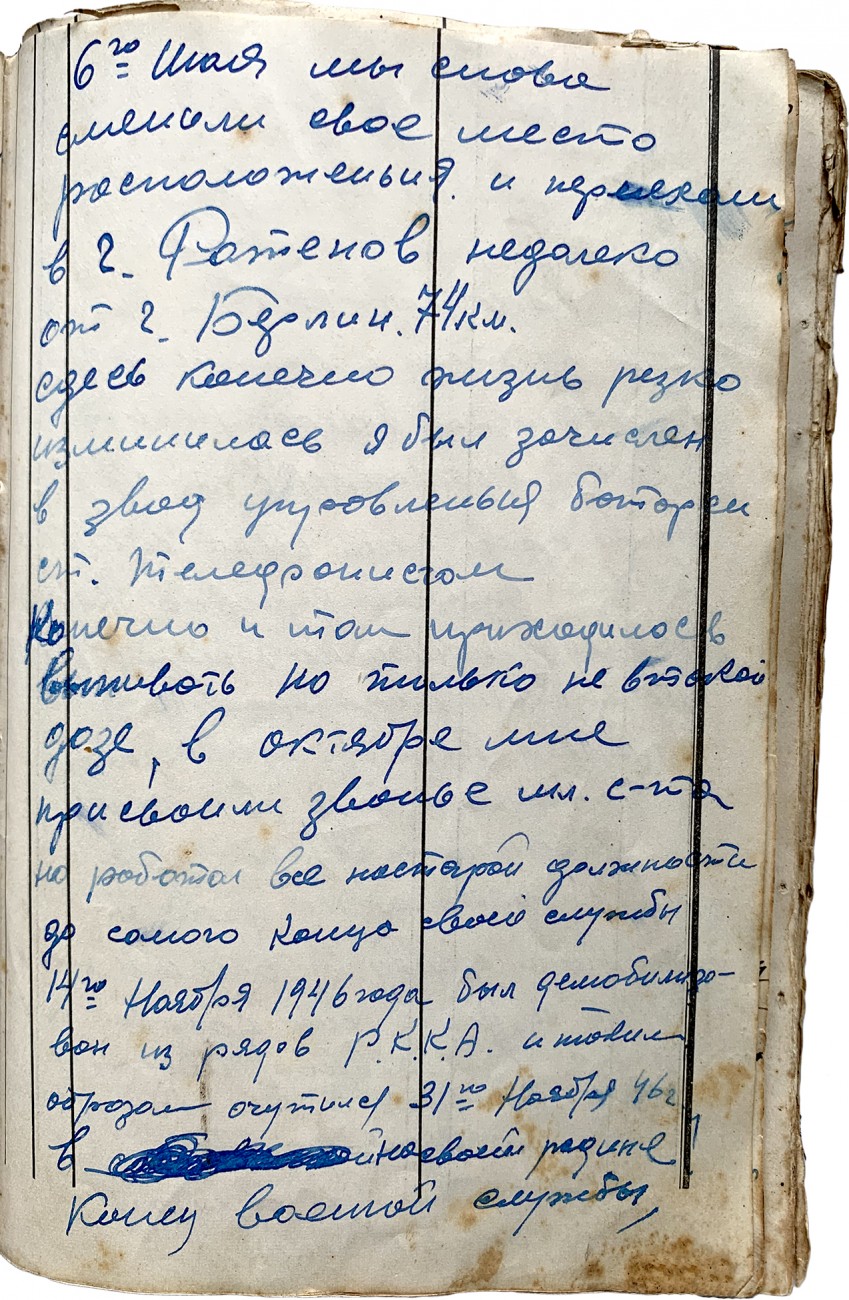 6го Июля мы снова
сменили свое место
расположеньия. и переехали
в г. Ратенов недалеко
от г. Берлин. 74 км.
сдесь конечно жизнь резко
изминилась я был зачислен
в звод управленья батареи
ст. телефонистом
Конечно и там приходилось
выживать но только не в такой
дозе, в октябре мне
присвоили званье мл. с-та
но работал все на старой должности
до самого конца своей службы
14го Ноября 1946 года был демобилизо-
ван из рядов Р.К.К.А. и таким
образом очутился 31го Ноября 46 г
в на своей радине!
Конец военной службы,